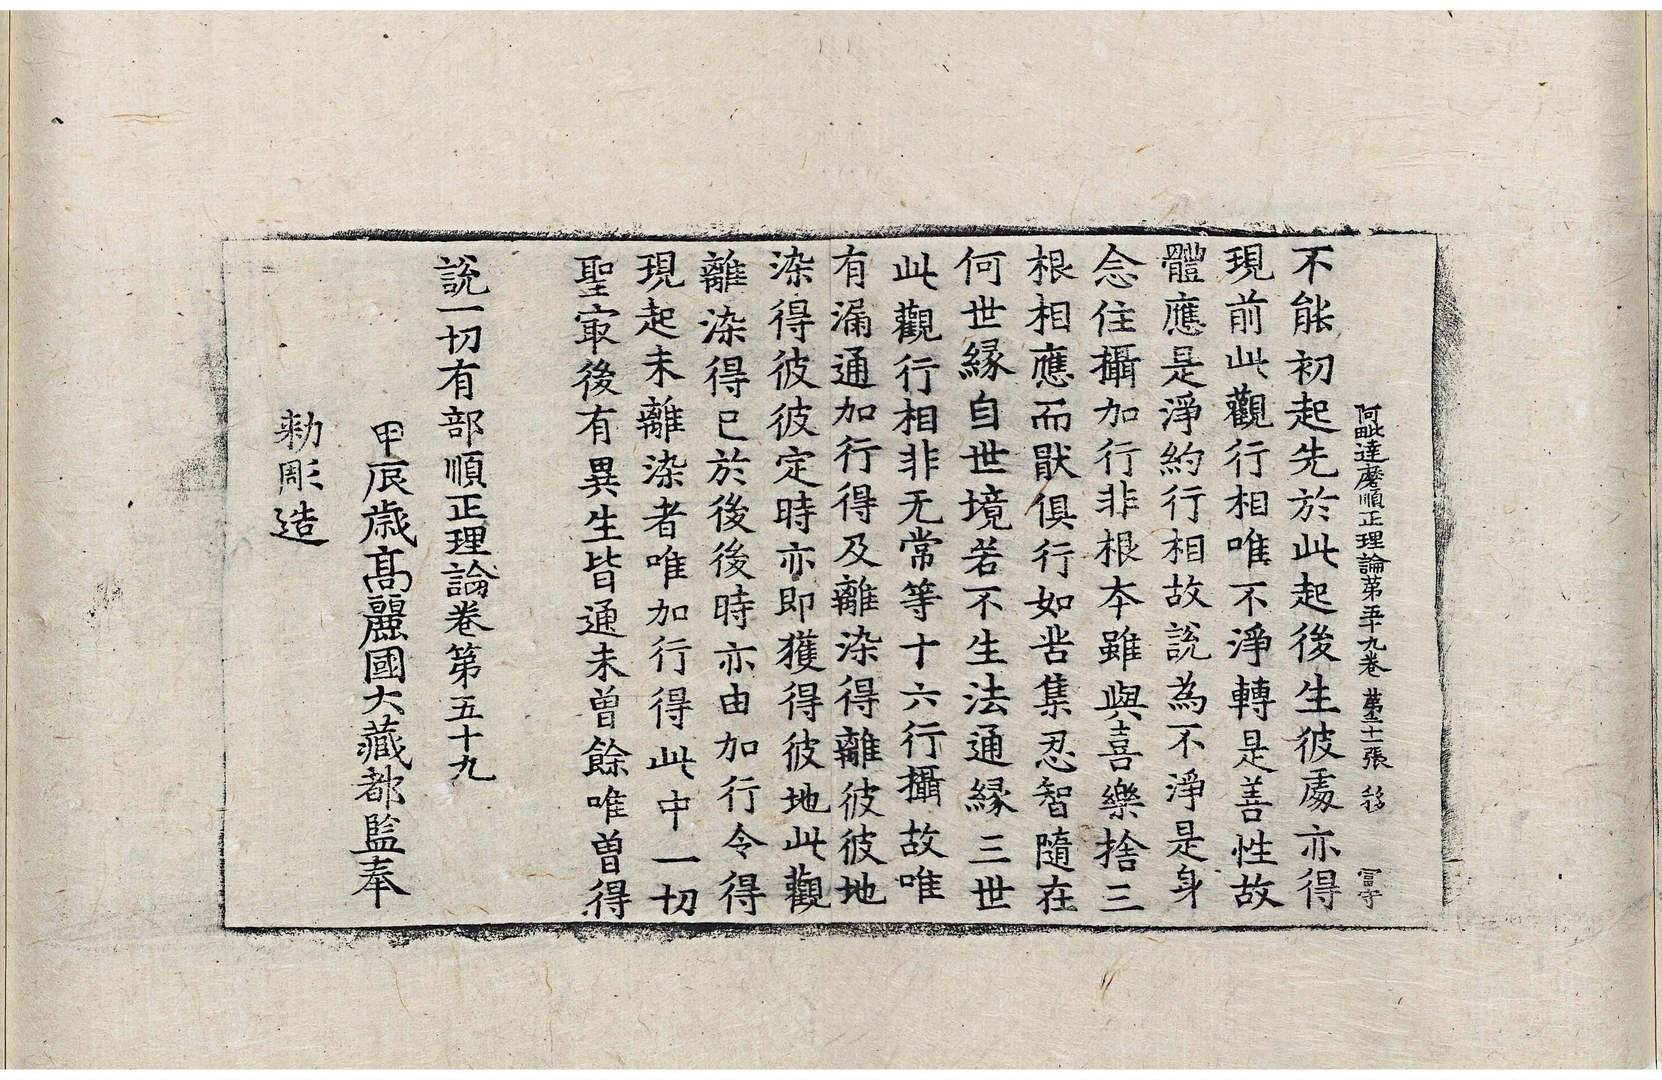 阿毗達磨順正理論第五十九卷 第二十張 移 富守
不能初起先於此起後生彼處亦得
現前此觀行相唯不淨轉是善性故
體應是淨約行相故說為不淨是身
念住攝加行非根夲雖與喜樂捨三
根相應而猒俱行如苦集忍智隨在
何世緣自世境若不生法通緣三世
此觀行相非无常等十六行攝故唯
有漏通加行得及離染得離彼彼地
染得彼彼定時亦即獲得彼地此觀
離染得已於後後時亦由加行令得
現起未離染者唯加行得此中一切
聖㝡後有異生皆通未曾餘唯曾得
說一切有部順正理論卷第五十九
甲辰歲高麗國大藏都監奉
勑彫造